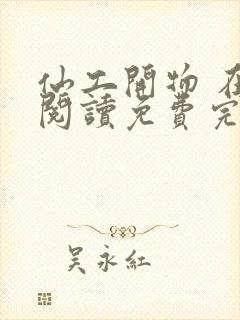 仙工開物 在
閱讀免費完
吳永紅